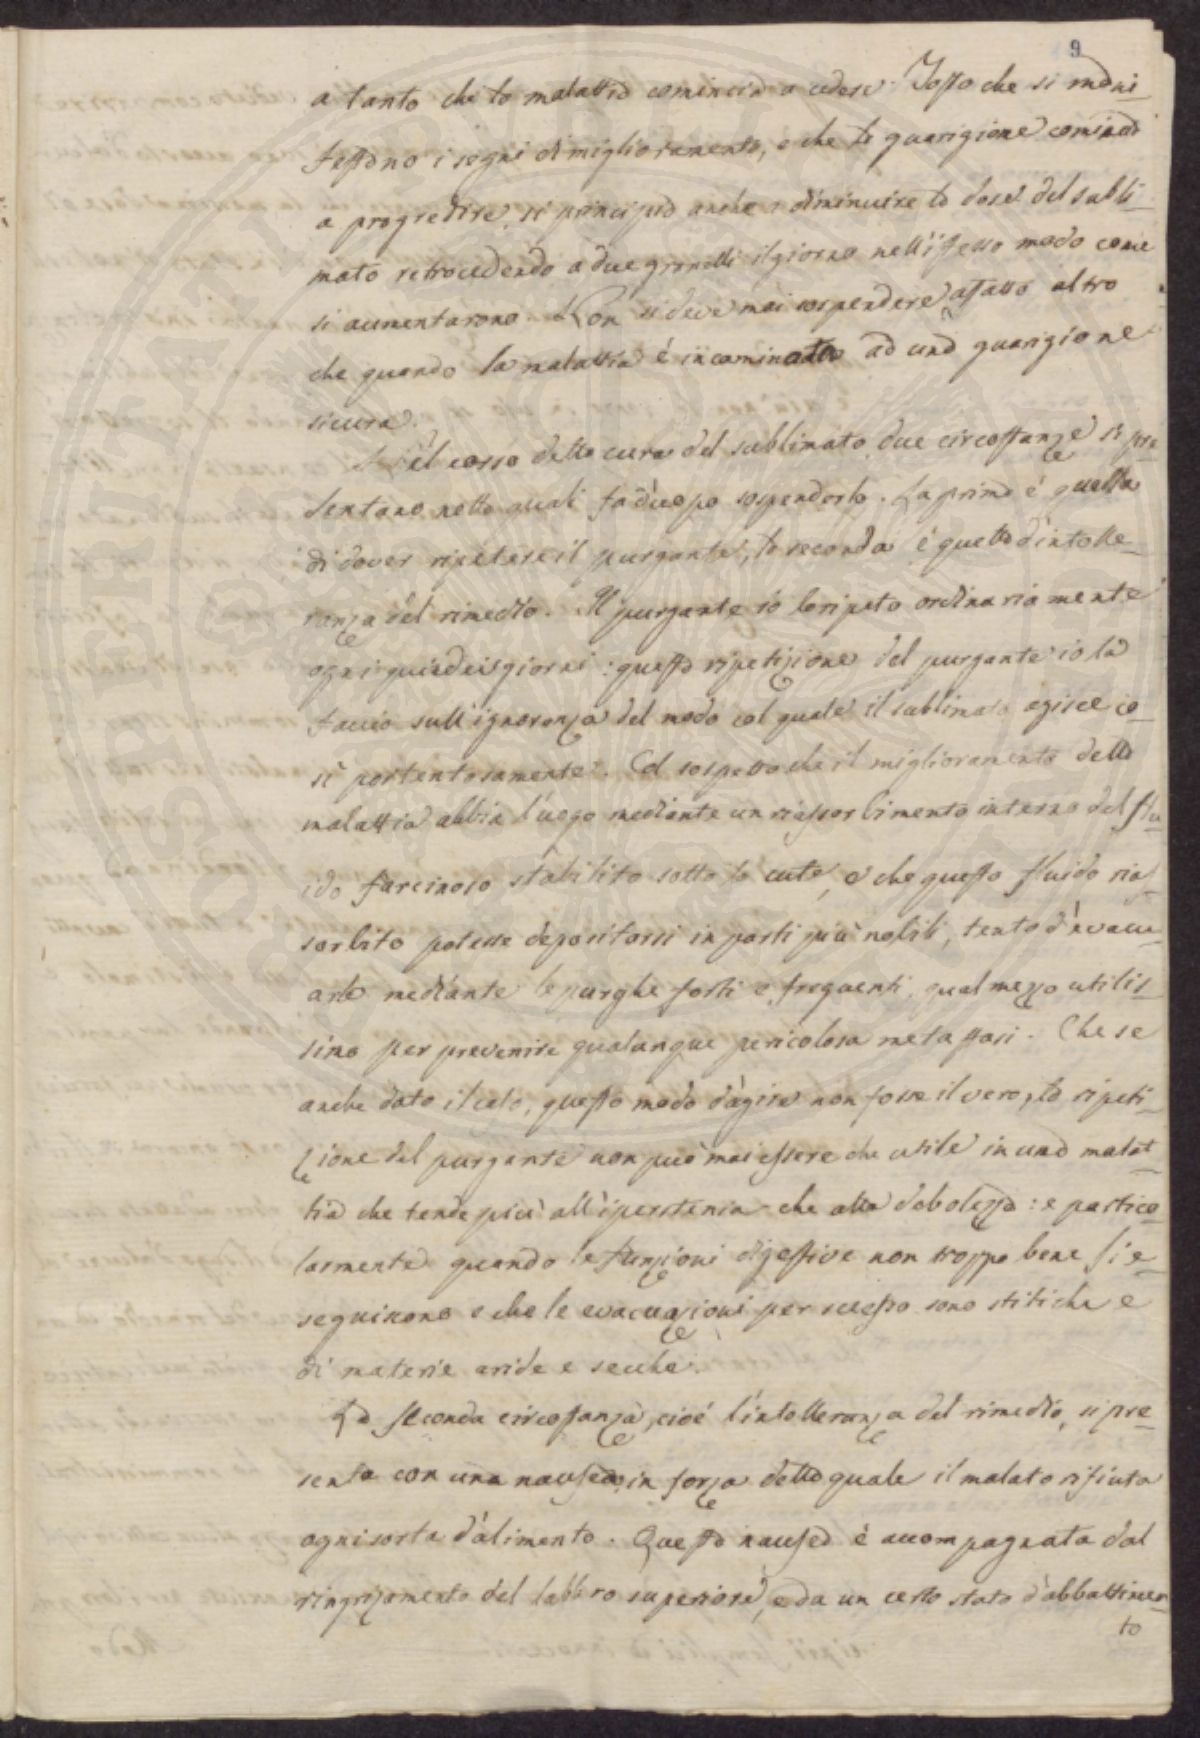 9
a tanto che la malattia comincia a cedere. Tosto che si mani-
festano i segni di miglioramento, e che la guarigione comincia
a progredire, si principia anche a diminuire la dose del subli-
mato retrocedendo a due granelli il giorno nell'istesso modo come
si aumentarono. Non si deve mai sospendere affatto altro
che quando la malattia è incaminata ad una guarigione
sicura.
Nel corso della cura del sublimato due circostanze si pre
sentano nelle quali fa d'uopo sospenderlo. La prima è quella
di dover ripetere il purgante, la seconda è quella d'intolle-
ranza del rimedio. Il purgante io lo ripeto ordinariamente
ogni quindeci giorni: questa ripetizione del purgante io la
faccio sull'ignoranza del modo col quale il sublimato agisce co-
sì portentosamente. Col sospetto che il miglioramento della
malattia abbia luogo mediante un riassorbimento interno del flu-
ido farcinoso stabilito sotto la cute, e che questo fluido ria-
sorbito potesse depositarsi in parti più nobili, tento d'evacu-
arlo mediante le purghe forti e frequenti, qual mezzo utilis-
simo per prevenire qualunque pericolosa metastasi. Che se
anche dato il caso, questo modo d'agire non fosse il vero, la ripeti-
zione del purgante non può mai essere che utile in una malat-
tia che tende più all'iperstenia che alla debolezza: e partico-
larmente quando le funzioni digestive non troppo bene si e-
seguiscono e che le evacuazioni per secesso sono stitiche e
di materie aride e secche.
La seconda circostanza, cioè l'intolleranza del rimedio, si pre-
senta con una nausea, in forza della quale il malato rifiuta
ogni sorta d'alimento. Questa nausea è accompagnata dal
ringrizamento del labbro superiore, e da un certo stato d'abbattimen-
to